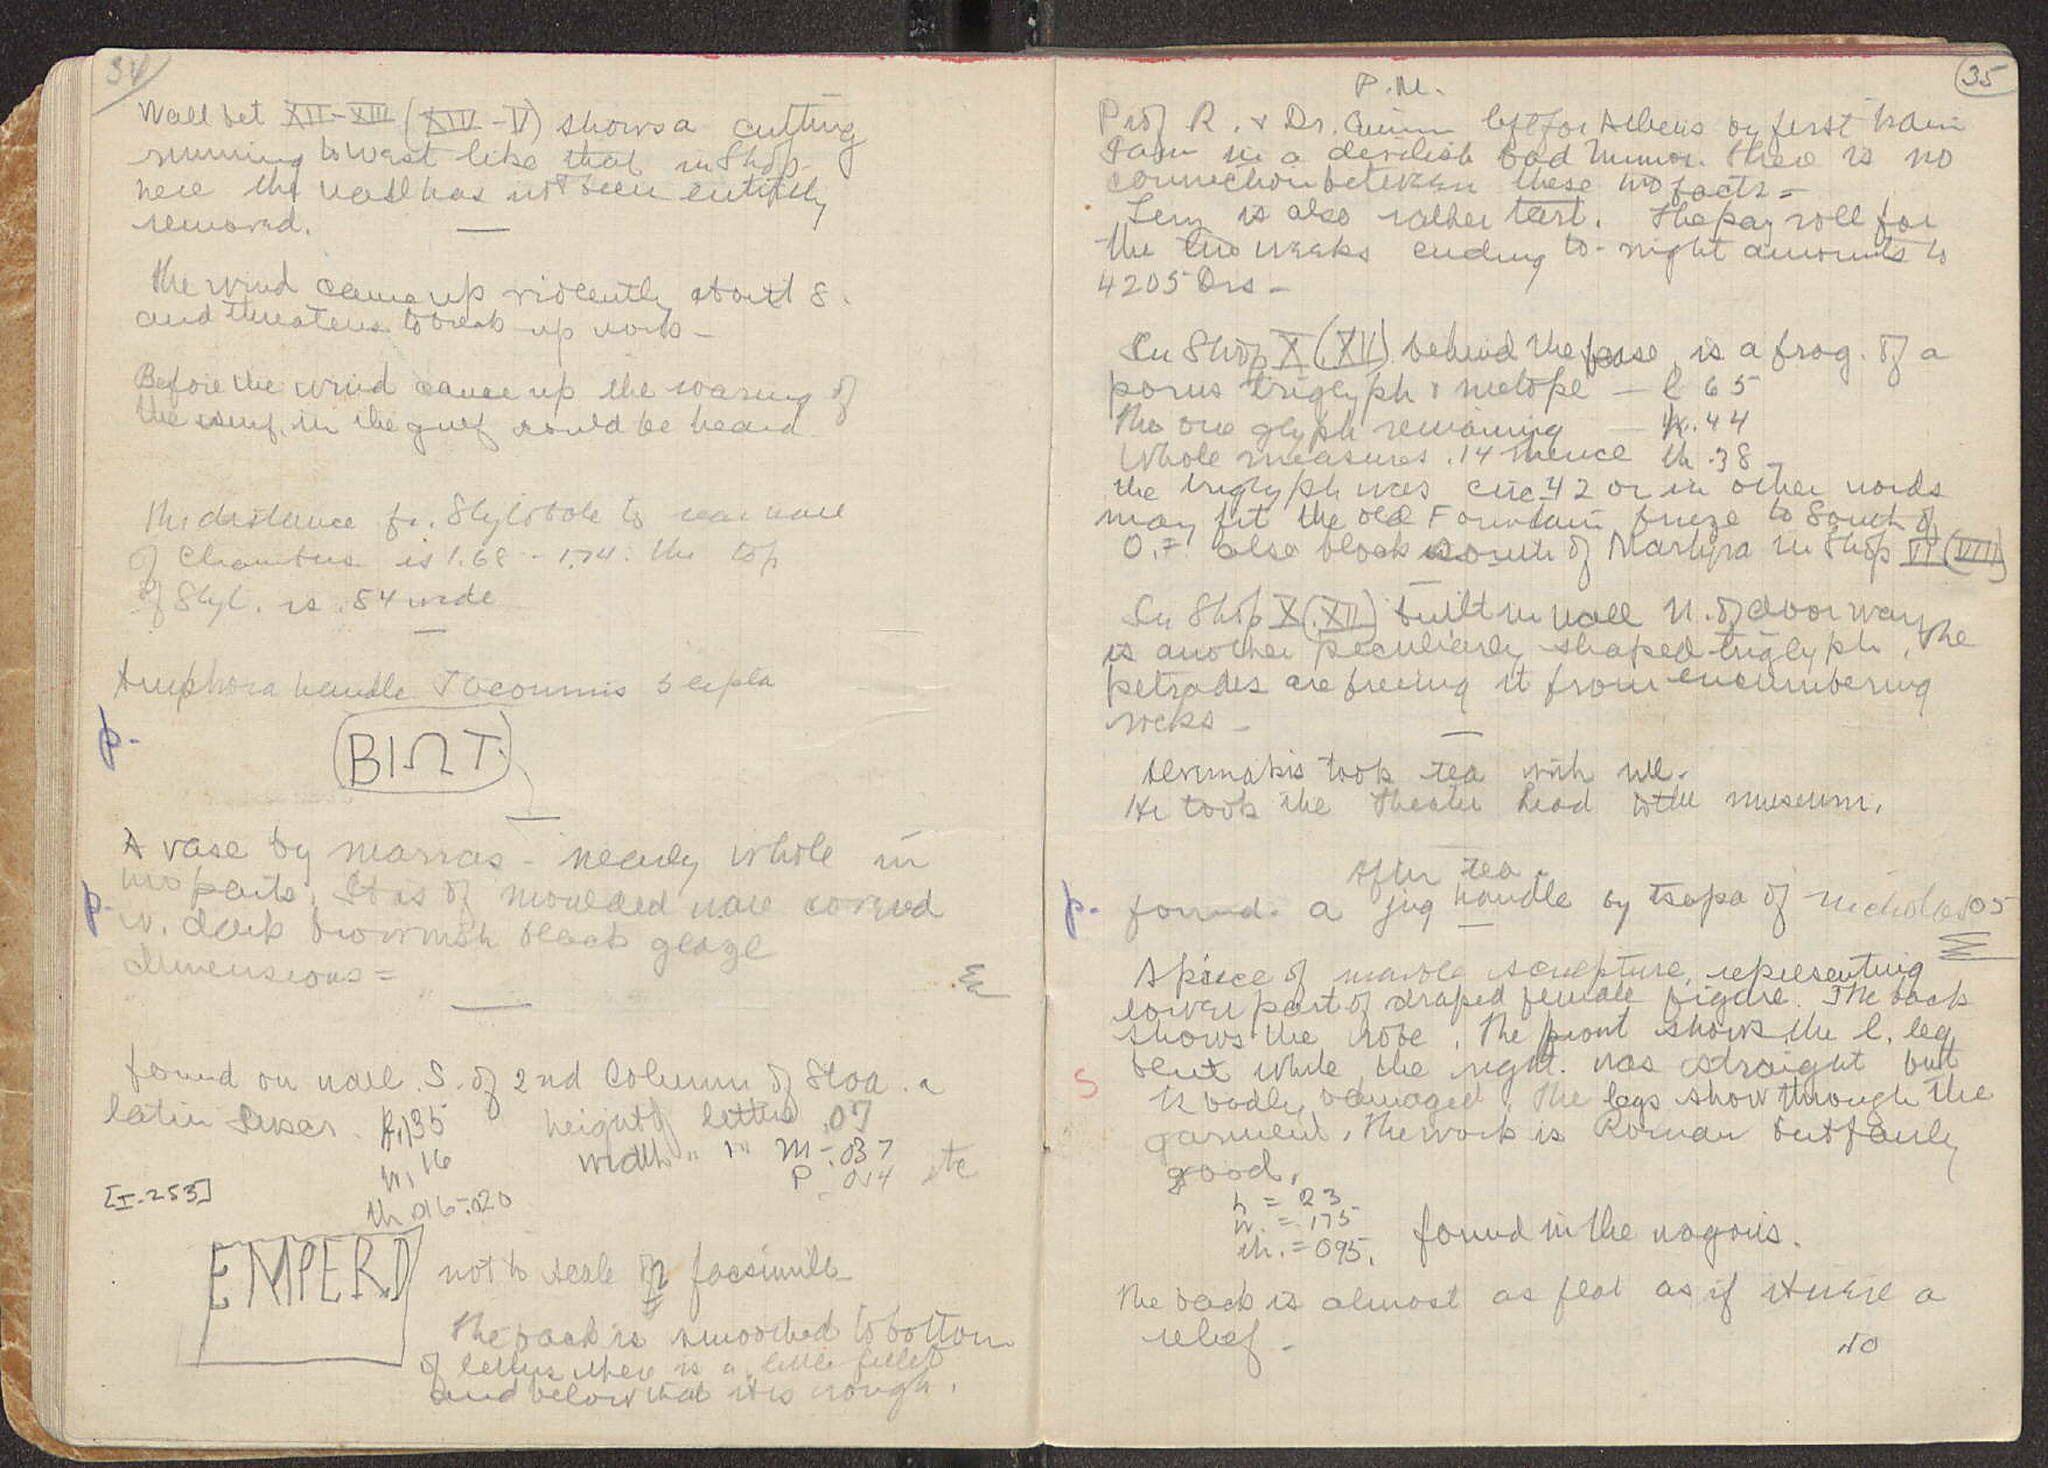 34
Wall bet XII-XIII (XIV-V) shows a cutting
running to west like that in Shop.
here the wall has not been entirely
removed.
The wind came up violently about 8.
and threatens to break up work -
Before the wind came up the roaring of
the surf in the gulf could be heard.
The distance fr. Stylobate to rear wall
of Chambers is 1.68 - 1.74. the top
of Styl. is .84 wide
Amphora handle
p.
ΒΙΩΤ.
A vase by marras - nearly whole in
p.
two parts. It is of moulded ware covered
w. dark brownish black glaze
dimensions =
found on wall S. of 2nd Column of Stoa a
latin inscr. h. .135 height of letters .07
w. .16 width " " M - .037
P .014 etc
[I-253]
th .016-.020
EMPERD
not to scale or facsimile
The back is smoothed to bottom
of letters where is a little fillet
and below that it is rough.
35
P.M.
Prof R. & Dr. Quinn left for Athens on first train
I am in a devilish bad humor. There is no
connection between these two facts =
Lem is also rather tart. The pay roll for
the two weeks ending to-night amounts to
4205 Drs -
In Shop X (XII) behind the is a frag. of a
porus triglyph & metope - l 65
The one glyph remaining - h. .44
Whole measures .14 hence th .38
the triglyph was circ 42 or in other words
may fit the old Fountain frieze to South of
O.F. also block south of Martyra in Shop VI (VIII)
In Shop X (XII) built in wall N. of doorway
is another peculiarly shaped triglyph. The
petrades are freeing it from encumbering
rocks -
took tea with me.
He took the Theater head to the museum.
After tea -
p. found. a jug handle by tsapa of Nicholas 05
A piece of marble sculpture, representing
lower part of draped female figure. The back
shows the robe. The front shows the l. leg
bent while the right was straight but
S
is badly damaged. The legs show through the
garment. The work is Roman but fairly
good.
h = 23
w. = .175
th. = 095. found in the wagons.
The back is almost as flat as if it were a
relief -